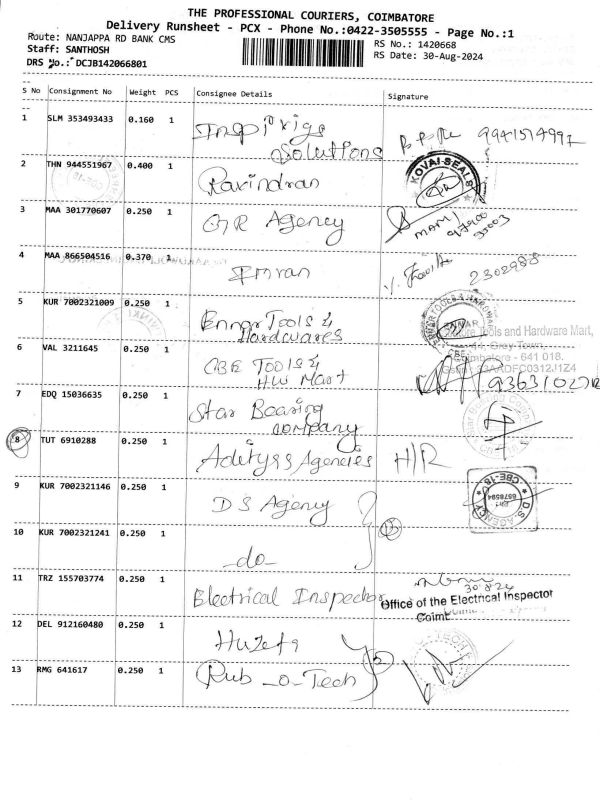 THE PROFESSIONAL COURIERS, COIMBATORE
Delivery Runsheet - PCX - Phone No.:0422-3505555 - Page No.:1
Route: NANJAPPA RD BANK CMS
Staff: SANTHOSH
DRS No.: DCJB142066801
RS No.: 1420668
RS Date: 30-Aug-2024
S No Consignment No Weight PCS Consignee Details Signature
1 SLM 353493433 0.160 1
Solutions
2 THN 944551967 0.400 1 Ravindran KOVAI SEALS
3 MAA 301770607 0.250 1 GR Agency
4 MAA 866504516 0.370 1 Imran 2302988
5 KUR 7002321009 0.250 1 Ennar Tools &
Hardwares
Tools and Hardware Mart,
Coimbatore - 641 018.
6 VAL 3211645 0.250 1 CBE Tools &
HW Mart
7 EDQ 15036635 0.250 1 Star Bearing
company
8 TUT 6910288 0.250 1 Adityss Agencies H/R
9 KUR 7002321146 0.250 1 D S Agency D.S. AGENCY CBE-18
10 KUR 7002321241 0.250 1 -do-
11 TRZ 155703774 0.250 1 Electrical Inspector 30.8.24
Office of the Electrical Inspector
12 DEL 912160480 0.250 1 Huzefa
13 RMG 641617 0.250 1 Rub-o-Tech